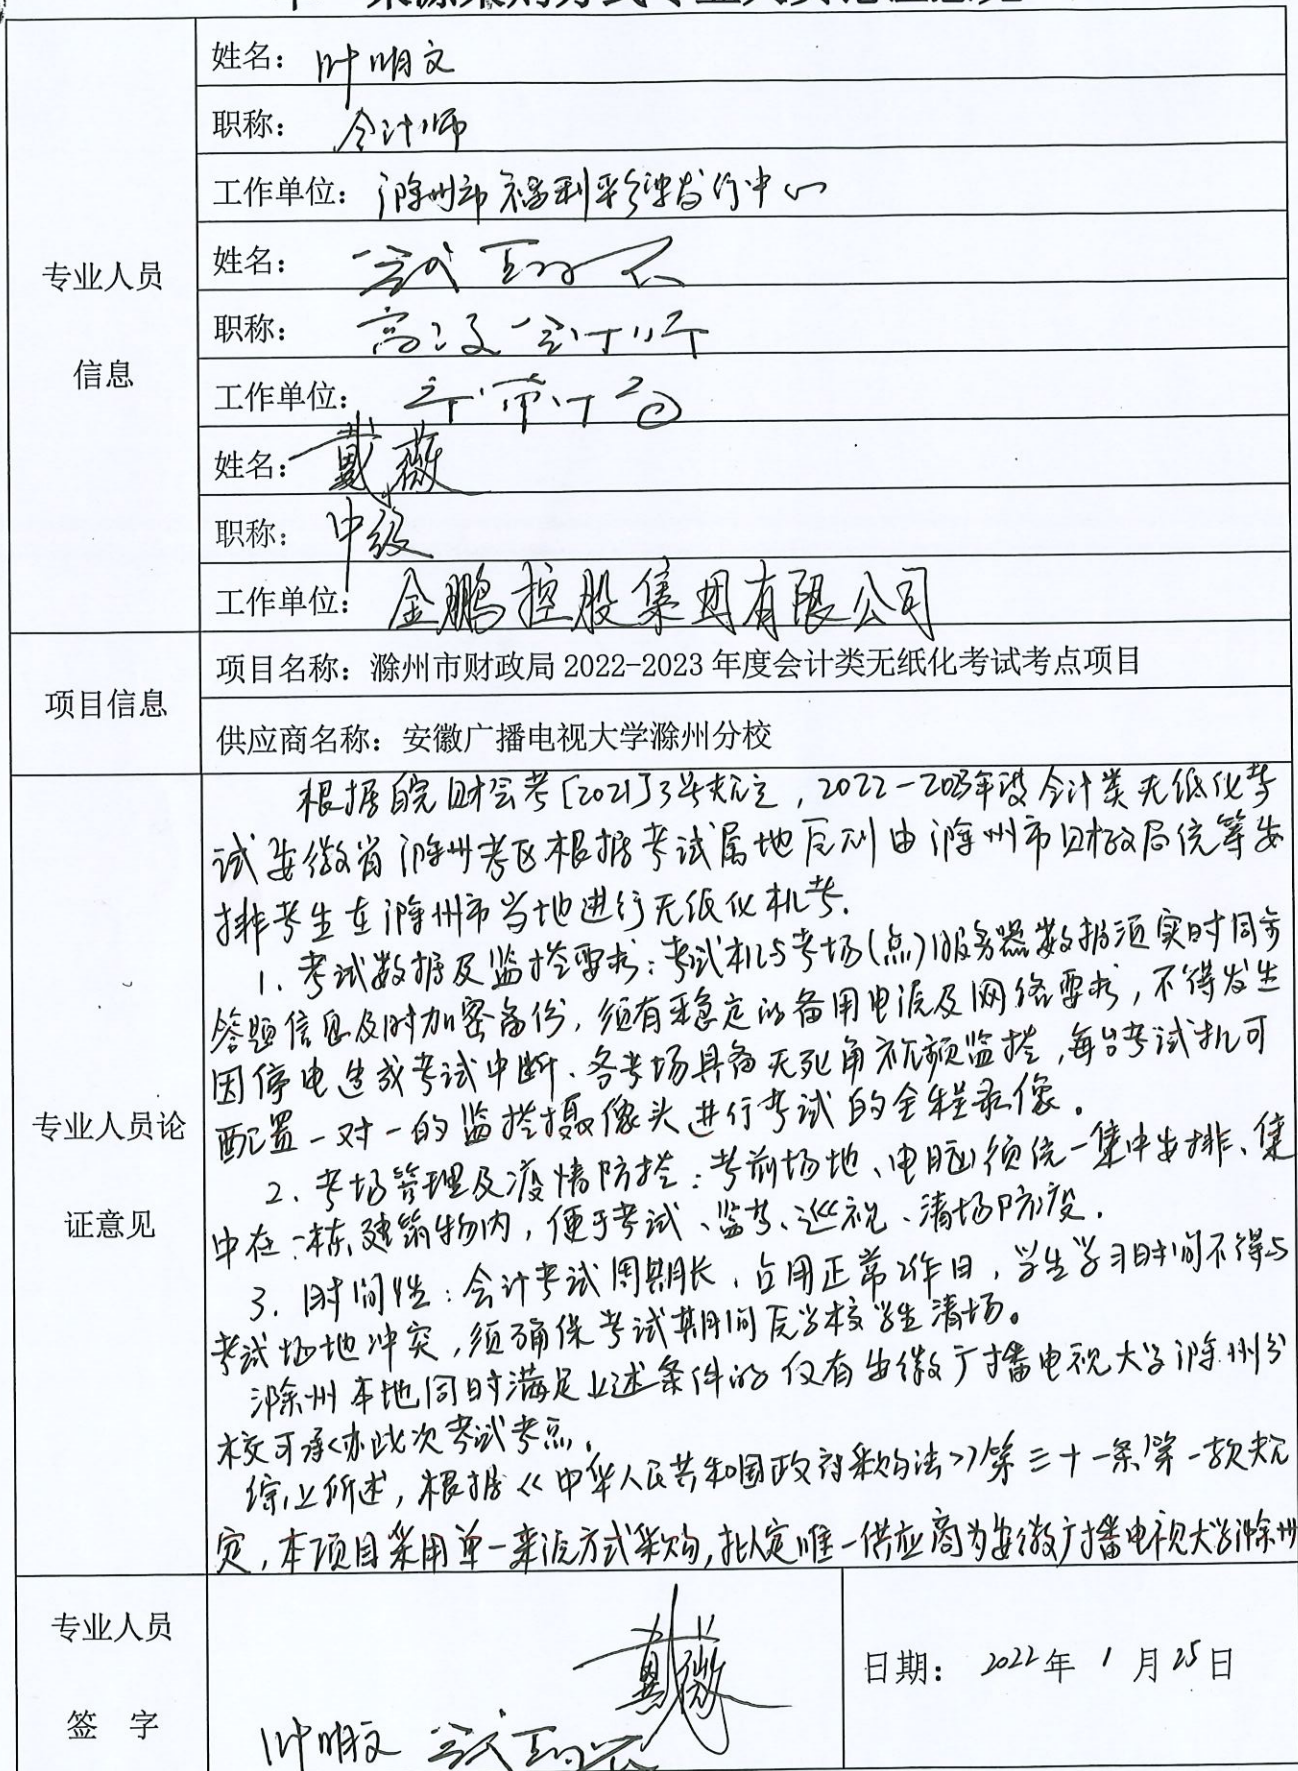 姓名：叶明文
职称：会计师
工作单位：滁州市福利彩票发行中心
姓名：
职称：高级会计师
专业人员
信息
工作单位：
姓名：戴薇
职称：中级
工作单位：金鹏控股集团有限公司
项目信息
项目名称：滁州市财政局2022-2023年度会计类无纸化考试考点项目
供应商名称：安徽广播电视大学滁州分校
专业人员论
证意见
根据皖财会考[2021]3号规定，2022-2023年度会计类无纸化考
试安徽省滁州考区根据考试属地原则由滁州市财政局统筹安
排考生在滁州市当地进行无纸化机考.
1、考试数据及监控要求：考试机与考场(点)服务器数据须实时同步
答题信息及时加密备份，须有稳定的备用电源及网络要求，不得发生
因停电造成考试中断、各考场具备无死角视频监控，每台考试机可
配置一对一的监控摄像头进行考试的全程录像。
2、考场管理及疫情防控：考前场地、电脑须统一集中安排、集
中在一栋建筑物内，便于考试、监考、巡视、清场防疫.
3、时间性：会计考试周期长、占用正常工作日，学生学习时间不得与
考试场地冲突，须确保考试期间原学校学生清场。
滁州本地同时满足上述条件的仅有安徽广播电视大学滁州分
校可承办此次考试考点。
综上所述，根据《中华人民共和国政府采购法》第三十一条第一款规
定，本项目采用单一来源方式采购，拟定唯一供应商为安徽广播电视大学滁州
专业人员
签 字
戴薇
叶明文
日期： 2022年 1 月25日